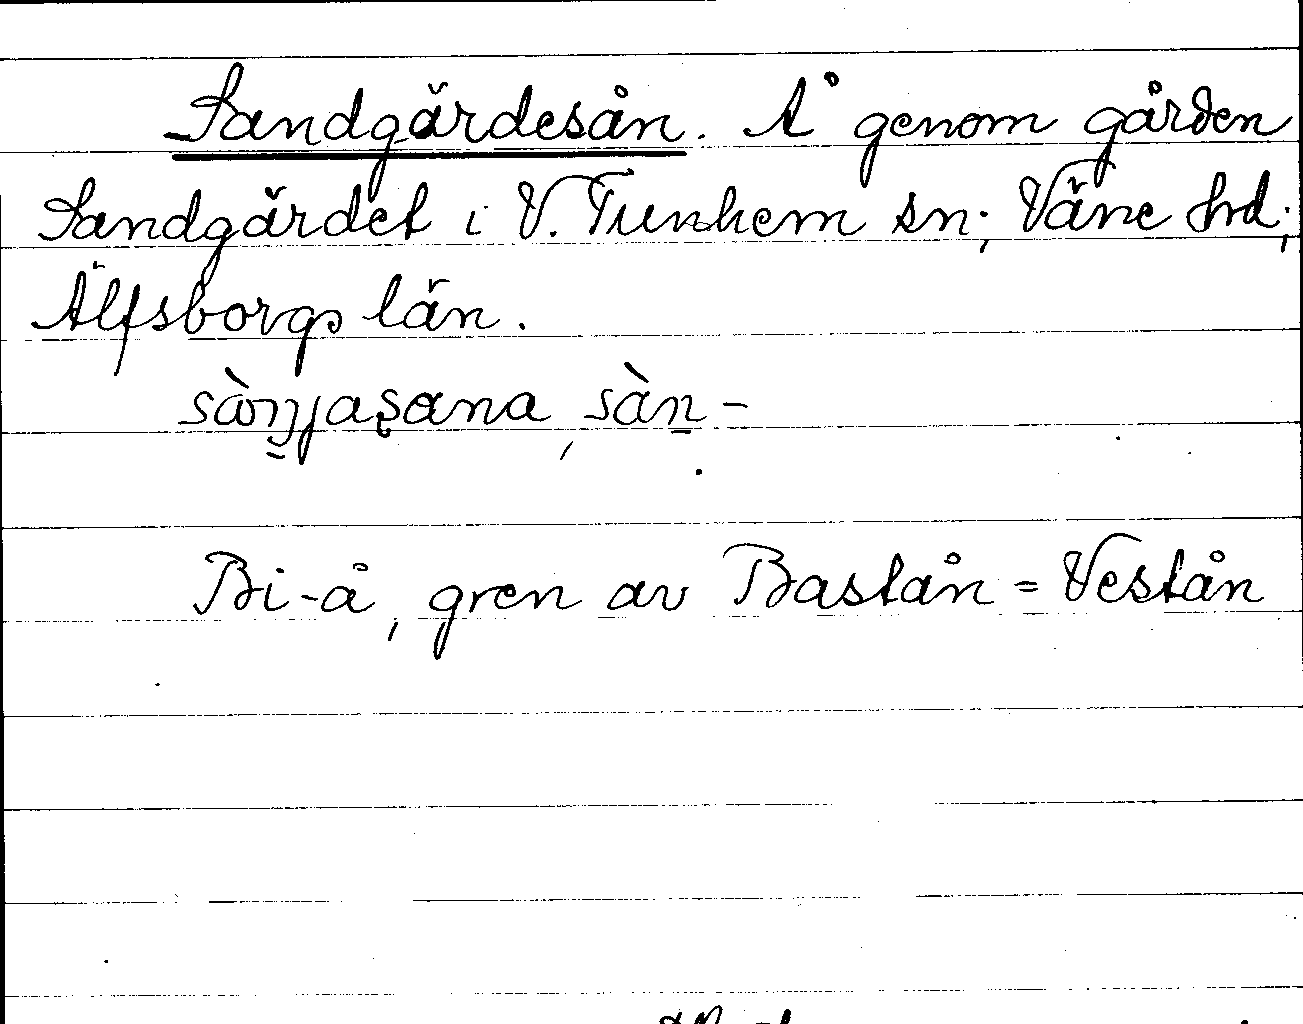 Sandgärdesån. Å genom gården
Sandgärdet i V. Tunhem sn; Väne hd;
Älfsborgs län.
sàn̠jaşana, sàn̠-
Bi-å, gren av Bastån = Vestån